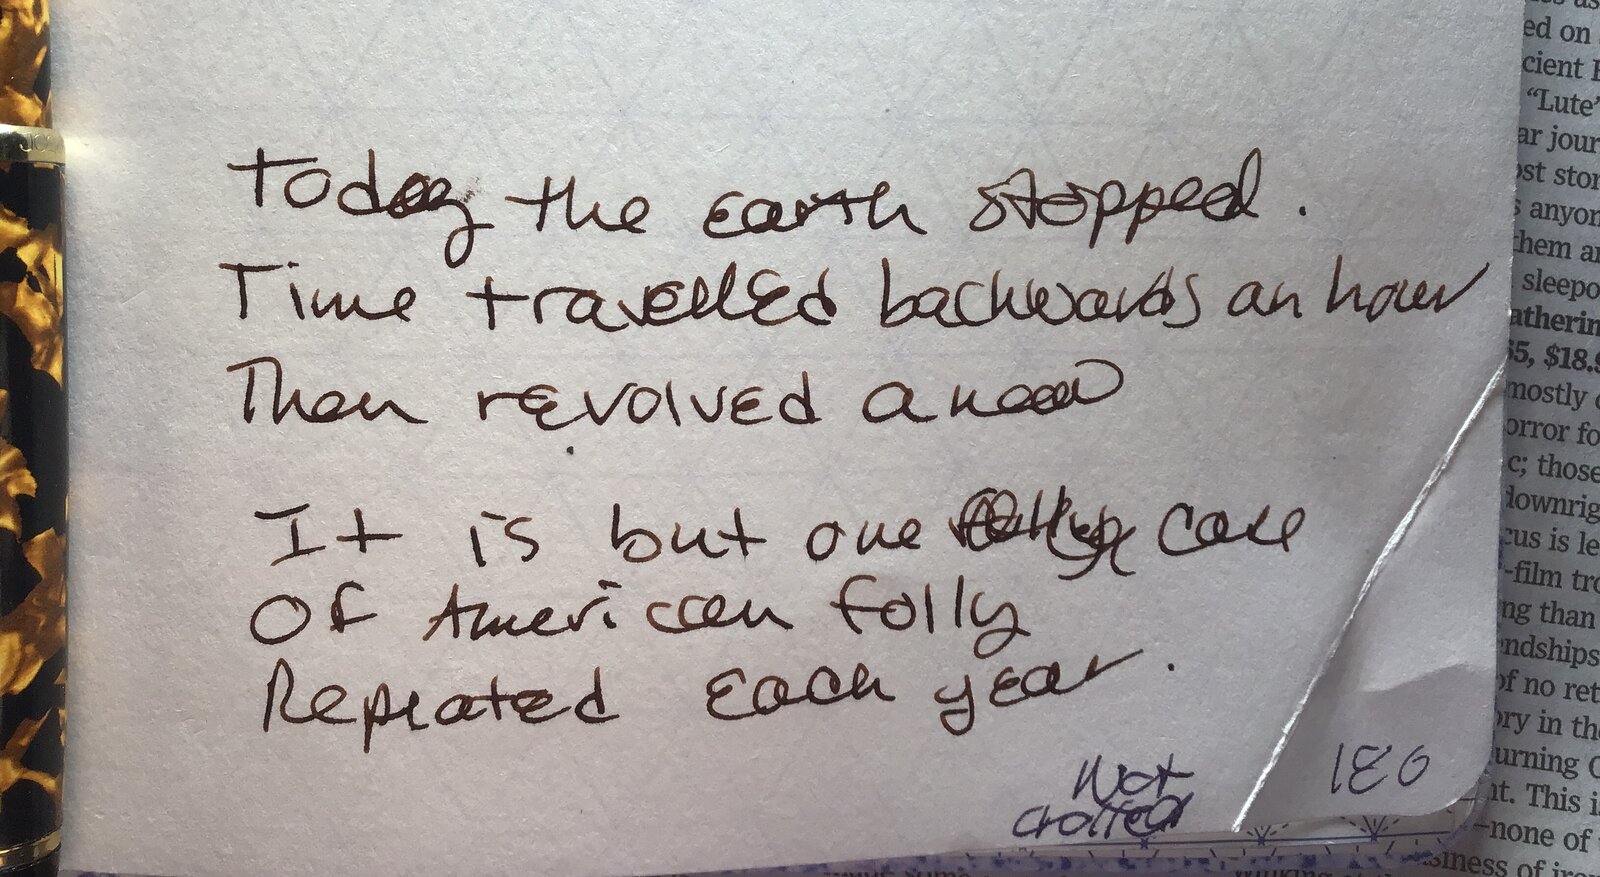 Today the earth stopped.
Time travelled backwards an hour
Then revolved anew
It is but one case
Of American folly
Repeated each year.
Not
180
ed on
cient
"Lute"
ar jour
ost stor
anyon
them a
sleepo
atherin
5, $18.9
mostly
orror fo
c; those
downrig
cus is le
-film tro
ng than
endships
of no ret
ory in the
urning
nt. This i
-none of
siness of iron